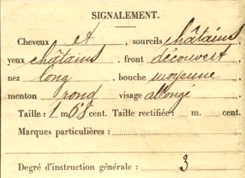 SIGNALEMENT.
Cheveux et sourcils châtains
yeux châtains front découvert
nez long bouche moyenne
menton rond visage allongé
Taille: 1 m 68 cent. Taille rectifiée: m. cent.
Marques particulières :
Degré d'instruction générale : 3